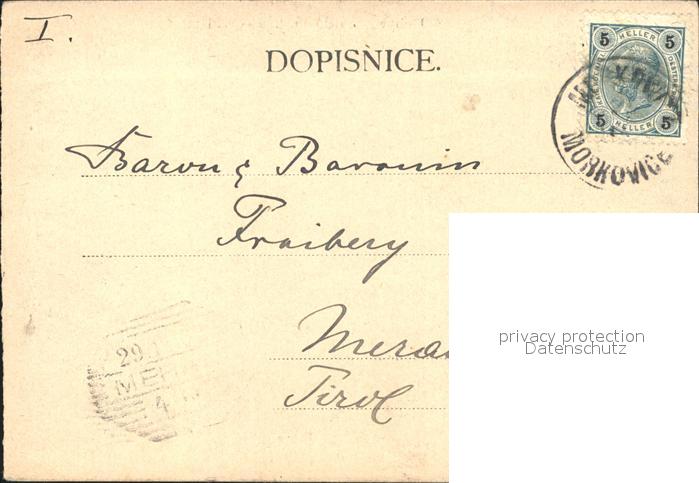 I.
DOPISNICE.
5 HELLER 5
5 HELLER 5
MORKOVICE
Baron & Baronin
Fraiberg
Meran
Tirol
privacy protection
Datenschutz
29
ME
4